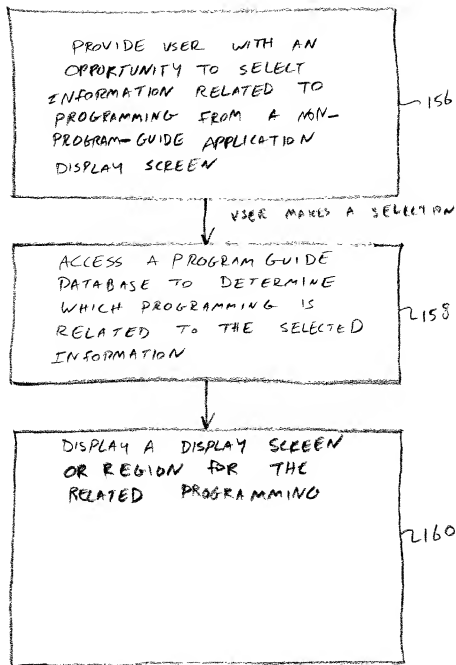 PROVIDE USER WITH AN
OPPORTUNITY TO SELECT
INFORMATION RELATED TO
PROGRAMMING FROM A NON-
PROGRAM-GUIDE APPLICATION
DISPLAY SCREEN
156
USER MAKES A SELECTION
ACCESS A PROGRAM GUIDE
DATABASE TO DETERMINE
WHICH PROGRAMMING IS
RELATED TO THE SELECTED
INFORMATION
158
DISPLAY A DISPLAY SCREEN
OR REGION FOR THE
RELATED PROGRAMMING
160